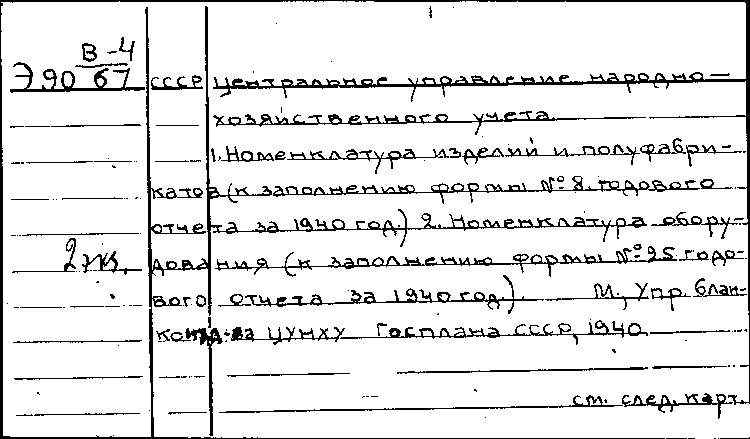 В-4
Э90 67
СССР Центральное управление народно-
хозяйственного учета.
1. Номенклатура изделий и полуфабри-
катов (к заполнению формы №8. годового
отчета за 1940 год.) 2. Номенклатура обору-
2 экз. дования (к заполнению формы №25 годо-
вого отчета за 1940 год.). М., Упр. блан-
коизд-ва ЦУНХУ Госплана СССР, 1940.
см. след. карт.